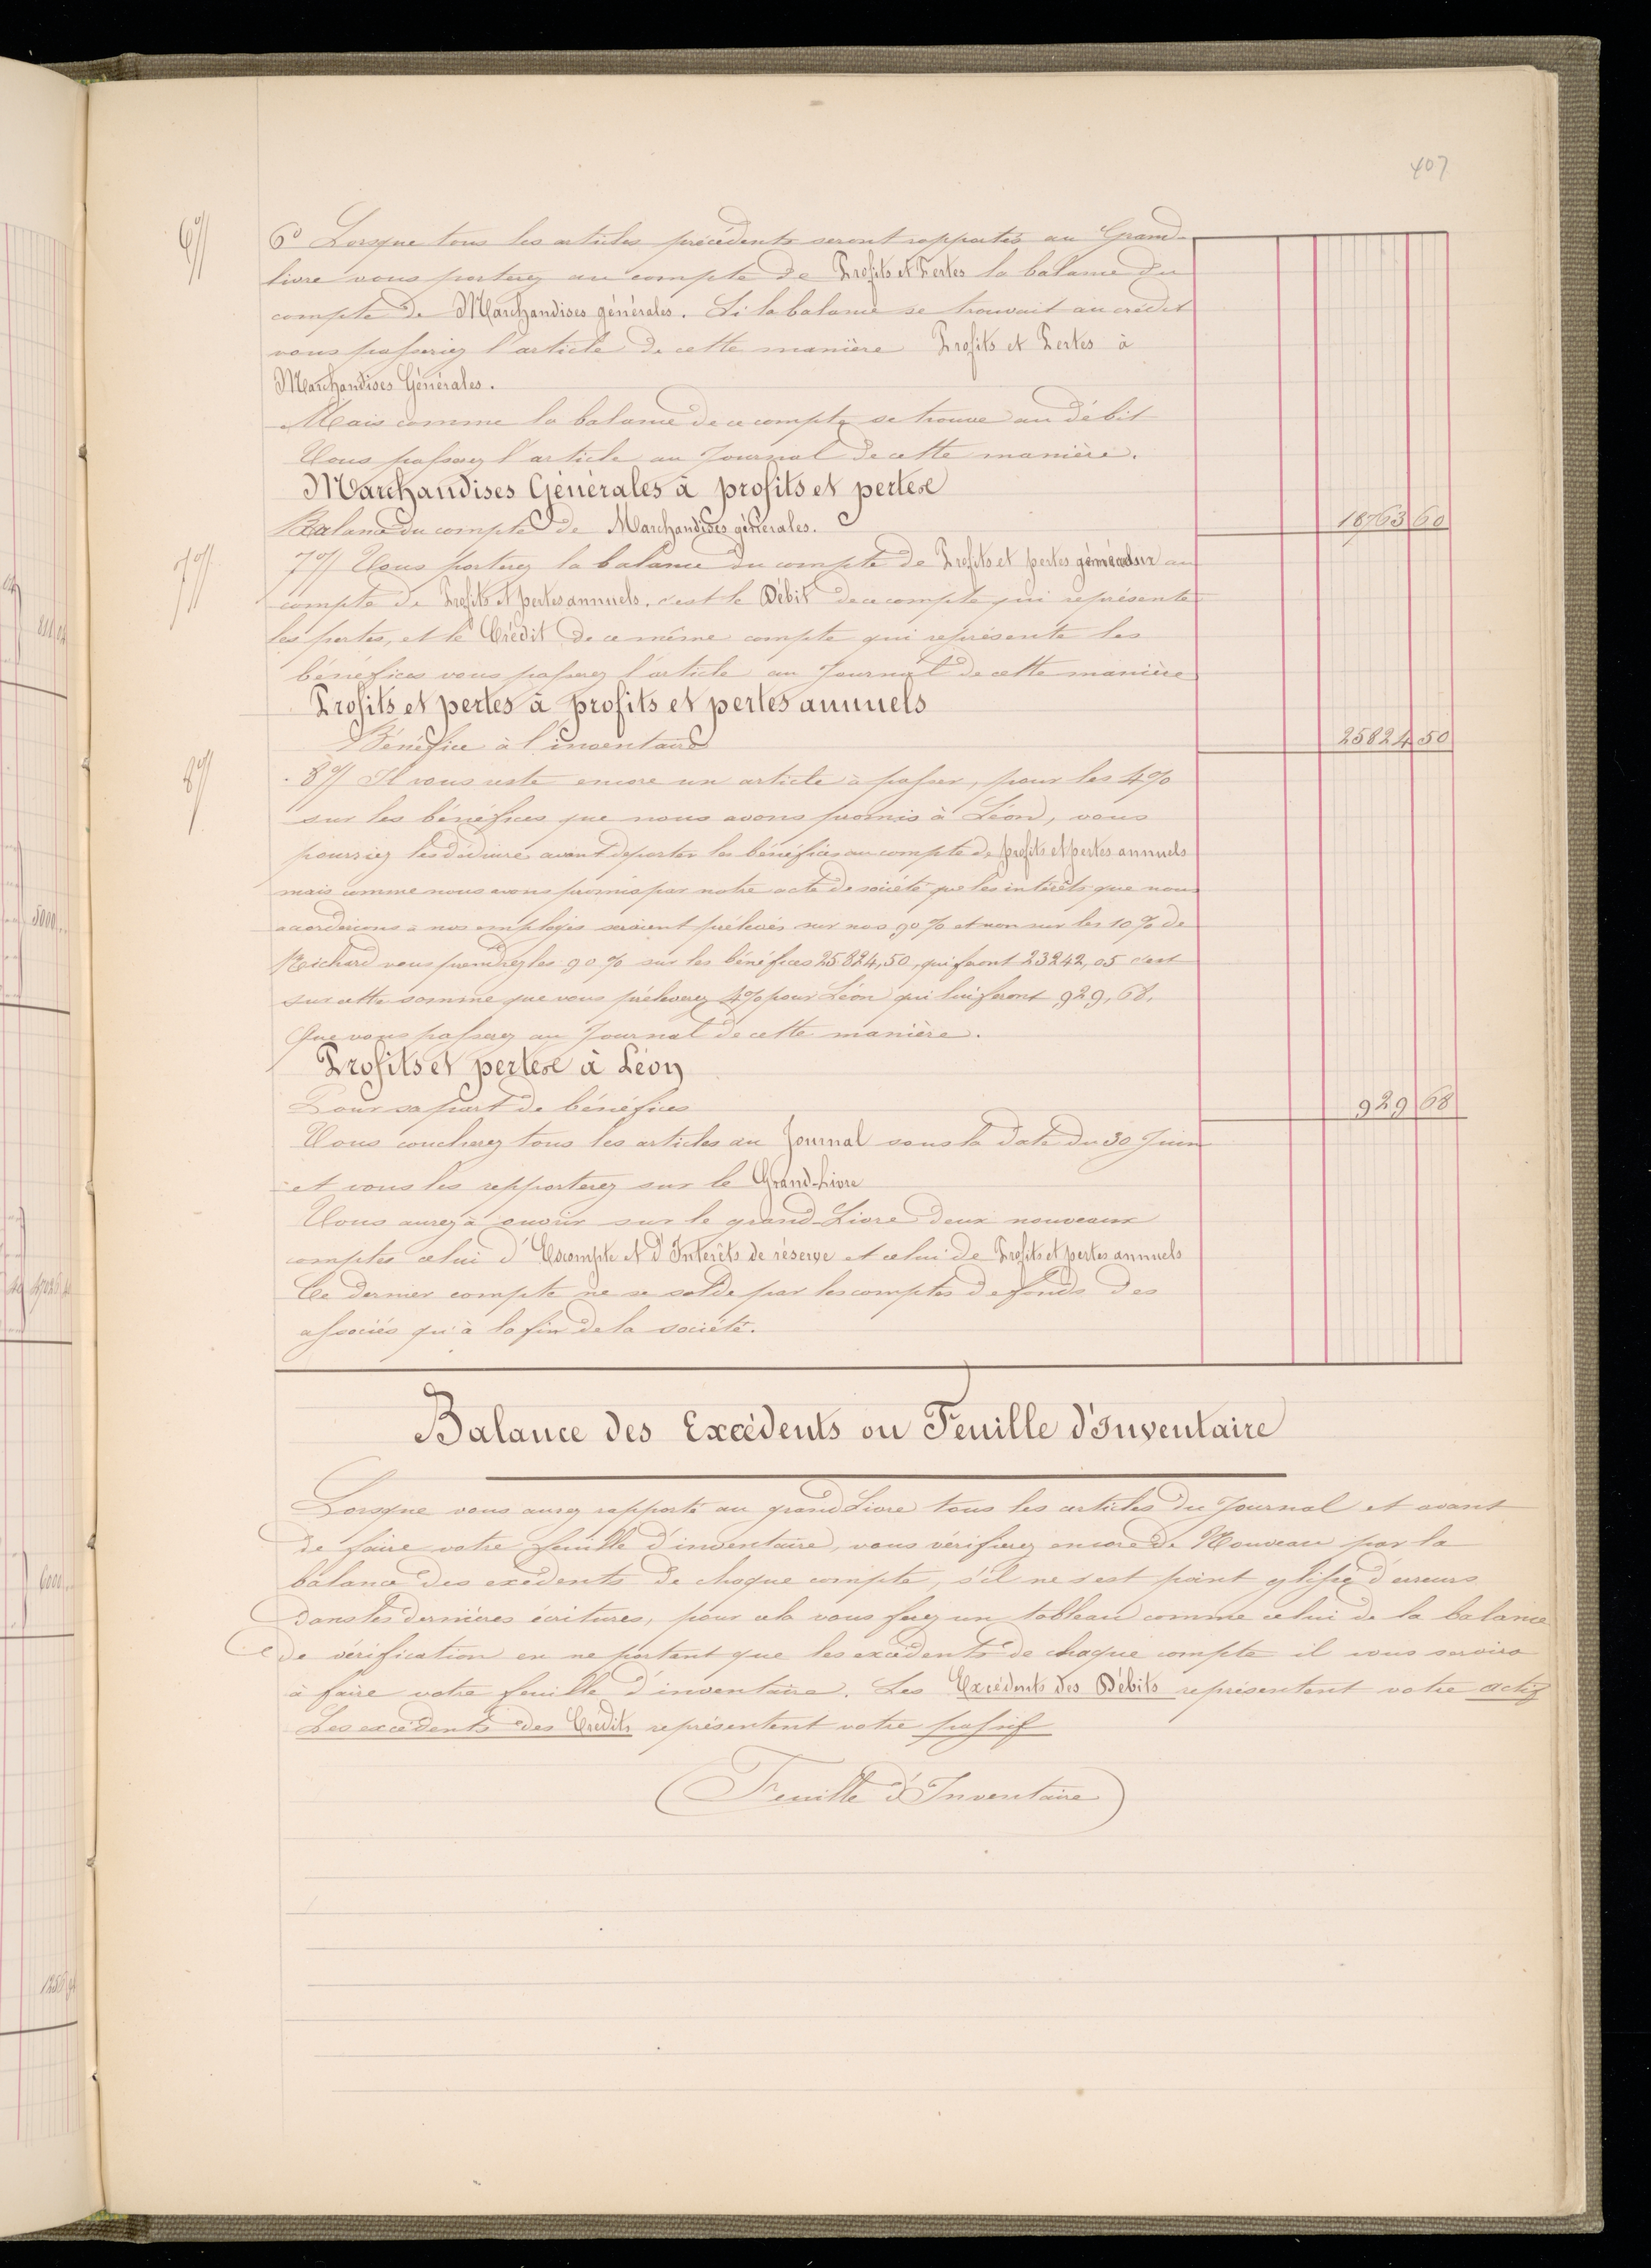 407
6°/
6° Lorsque tous les articles précédents seront rapportés au Grand-
livre vous porterez au compte de Profits et Pertes la balance du
compte de Marchandises générales. Si la balance se trouvait au crédit
vous passeriez l'article de cette manière Profits et Pertes à
Marchandises Générales.
Mais comme la balance de ce compte se trouve au débit
Vous passerez l'article au Journal de cette manière.
Marchandises Générales à profits et pertes
Balance du compte de Marchandises générales. 18763 60
7°/
7°/ Vous porterez la balance du compte de Profits et pertes généraux au
compte de Profits et pertes annuels. c'est le Débit de ce compte qui représente
les pertes, et le Crédit de ce même compte qui représente les
bénéfices vous passerez l'article au Journal de cette manière
Profits et pertes à profits et pertes annuels
Bénéfice à l'inventaire 25824 50
8°/
8°/ Il vous reste encore un article à passer, pour les 4%
sur les bénéfices que nous avons promis à Léon, vous
pourriez les déduire avant de porter les bénéfices au compte de profits et pertes annuels
mais comme nous avons promis par notre acte de société que les intérêts que nous
accorderions à nos employés seraient prélevés sur nos 90% et non sur les 10% de
Richard vous prendrez les 90% sur les bénéfices 25824,50, qui feront 23242,05 c'est
sur cette somme que vous prélèverez 4% pour Léon qui lui feront 929,68.
Que vous passerez au Journal de cette manière.
Profits et pertes à Léon
Pour sa part de bénéfices 929 68
Vous coucherez tous les articles au Journal sous la date du 30 Juin
et vous les rapporterez sur le Grand-Livre
Vous aurez à ouvrir sur le grand-Livre deux nouveaux
comptes celui d'Escompte et d'Intérêts de réserve et celui de Profits et pertes annuels
Ce dernier compte ne se solde par les comptes de fonds des
associés qu'à la fin de la société.
Balance des Excédents ou Feuille d'Inventaire
Lorsque vous aurez rapporté au grand Livre tous les articles du Journal et avant
de faire votre feuille d'inventaire, vous vérifierez encore de Nouveau par la
balance des excédents de chaque compte, s'il ne s'est point glissé d'erreurs
dans les dernières écritures, pour cela vous ferez un tableau comme celui de la balance
de vérification en ne portant que les excédents de chaque compte il vous servira
à faire votre feuille d'inventaire. Les Excédents des Débits représentent votre actif
Les excédents des Crédits représentent votre passif
Feuille d'Inventaire